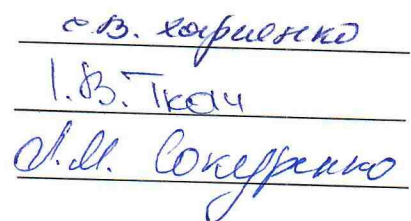 В. Харченко
І.В. Ткач
Л.М. Сокуренко